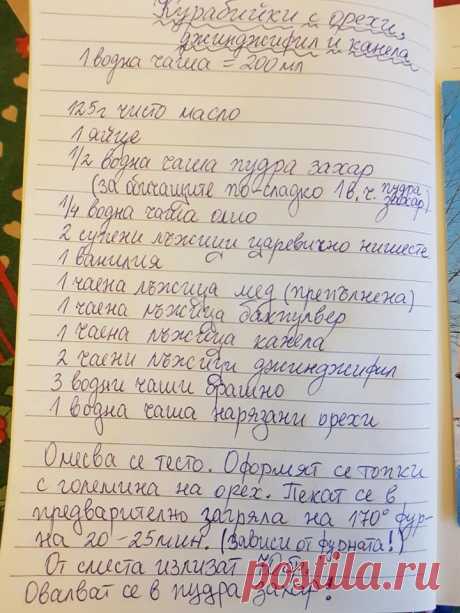 Курабийки с орехи,
джинджифил и канела
1 водна чаша = 200мл
125г чисто масло
1 яйце
1/2 водна чаша пудра захар
(за обичащите по-сладко 1 в.ч. пудра захар)
1/4 водна чаша олио
2 супени лъжици царевично нишесте
1 ванилия
1 чаена лъжица мед (препълнена)
1 чаена лъжица бакпулвер
1 чаена лъжица канела
2 чаени лъжици джинджифил
3 водни чаши брашно
1 водна чаша нарязани орехи
Омесва се тесто. Оформят се топки
с големина на орех. Пекат се в
предварително загряла на 170° фур-
на 20-25мин. (зависи от фурната!)
От сместа излизат 70бр.
Овалват се в пудра захар!
postila.ru